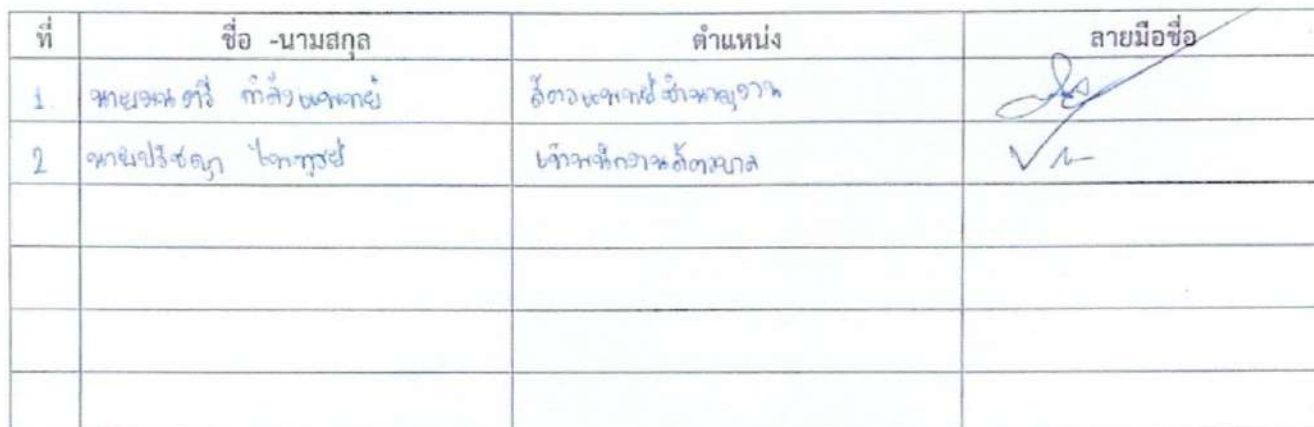 ที่ ชื่อ -นามสกุล ตำแหน่ง ลายมือชื่อ
1. นายมนตรี กำลังแพทย์ สัตวแพทย์ชำนาญงาน
2 นายปรัชญา ไพฑูรย์ เจ้าพนักงานสัตวบาล